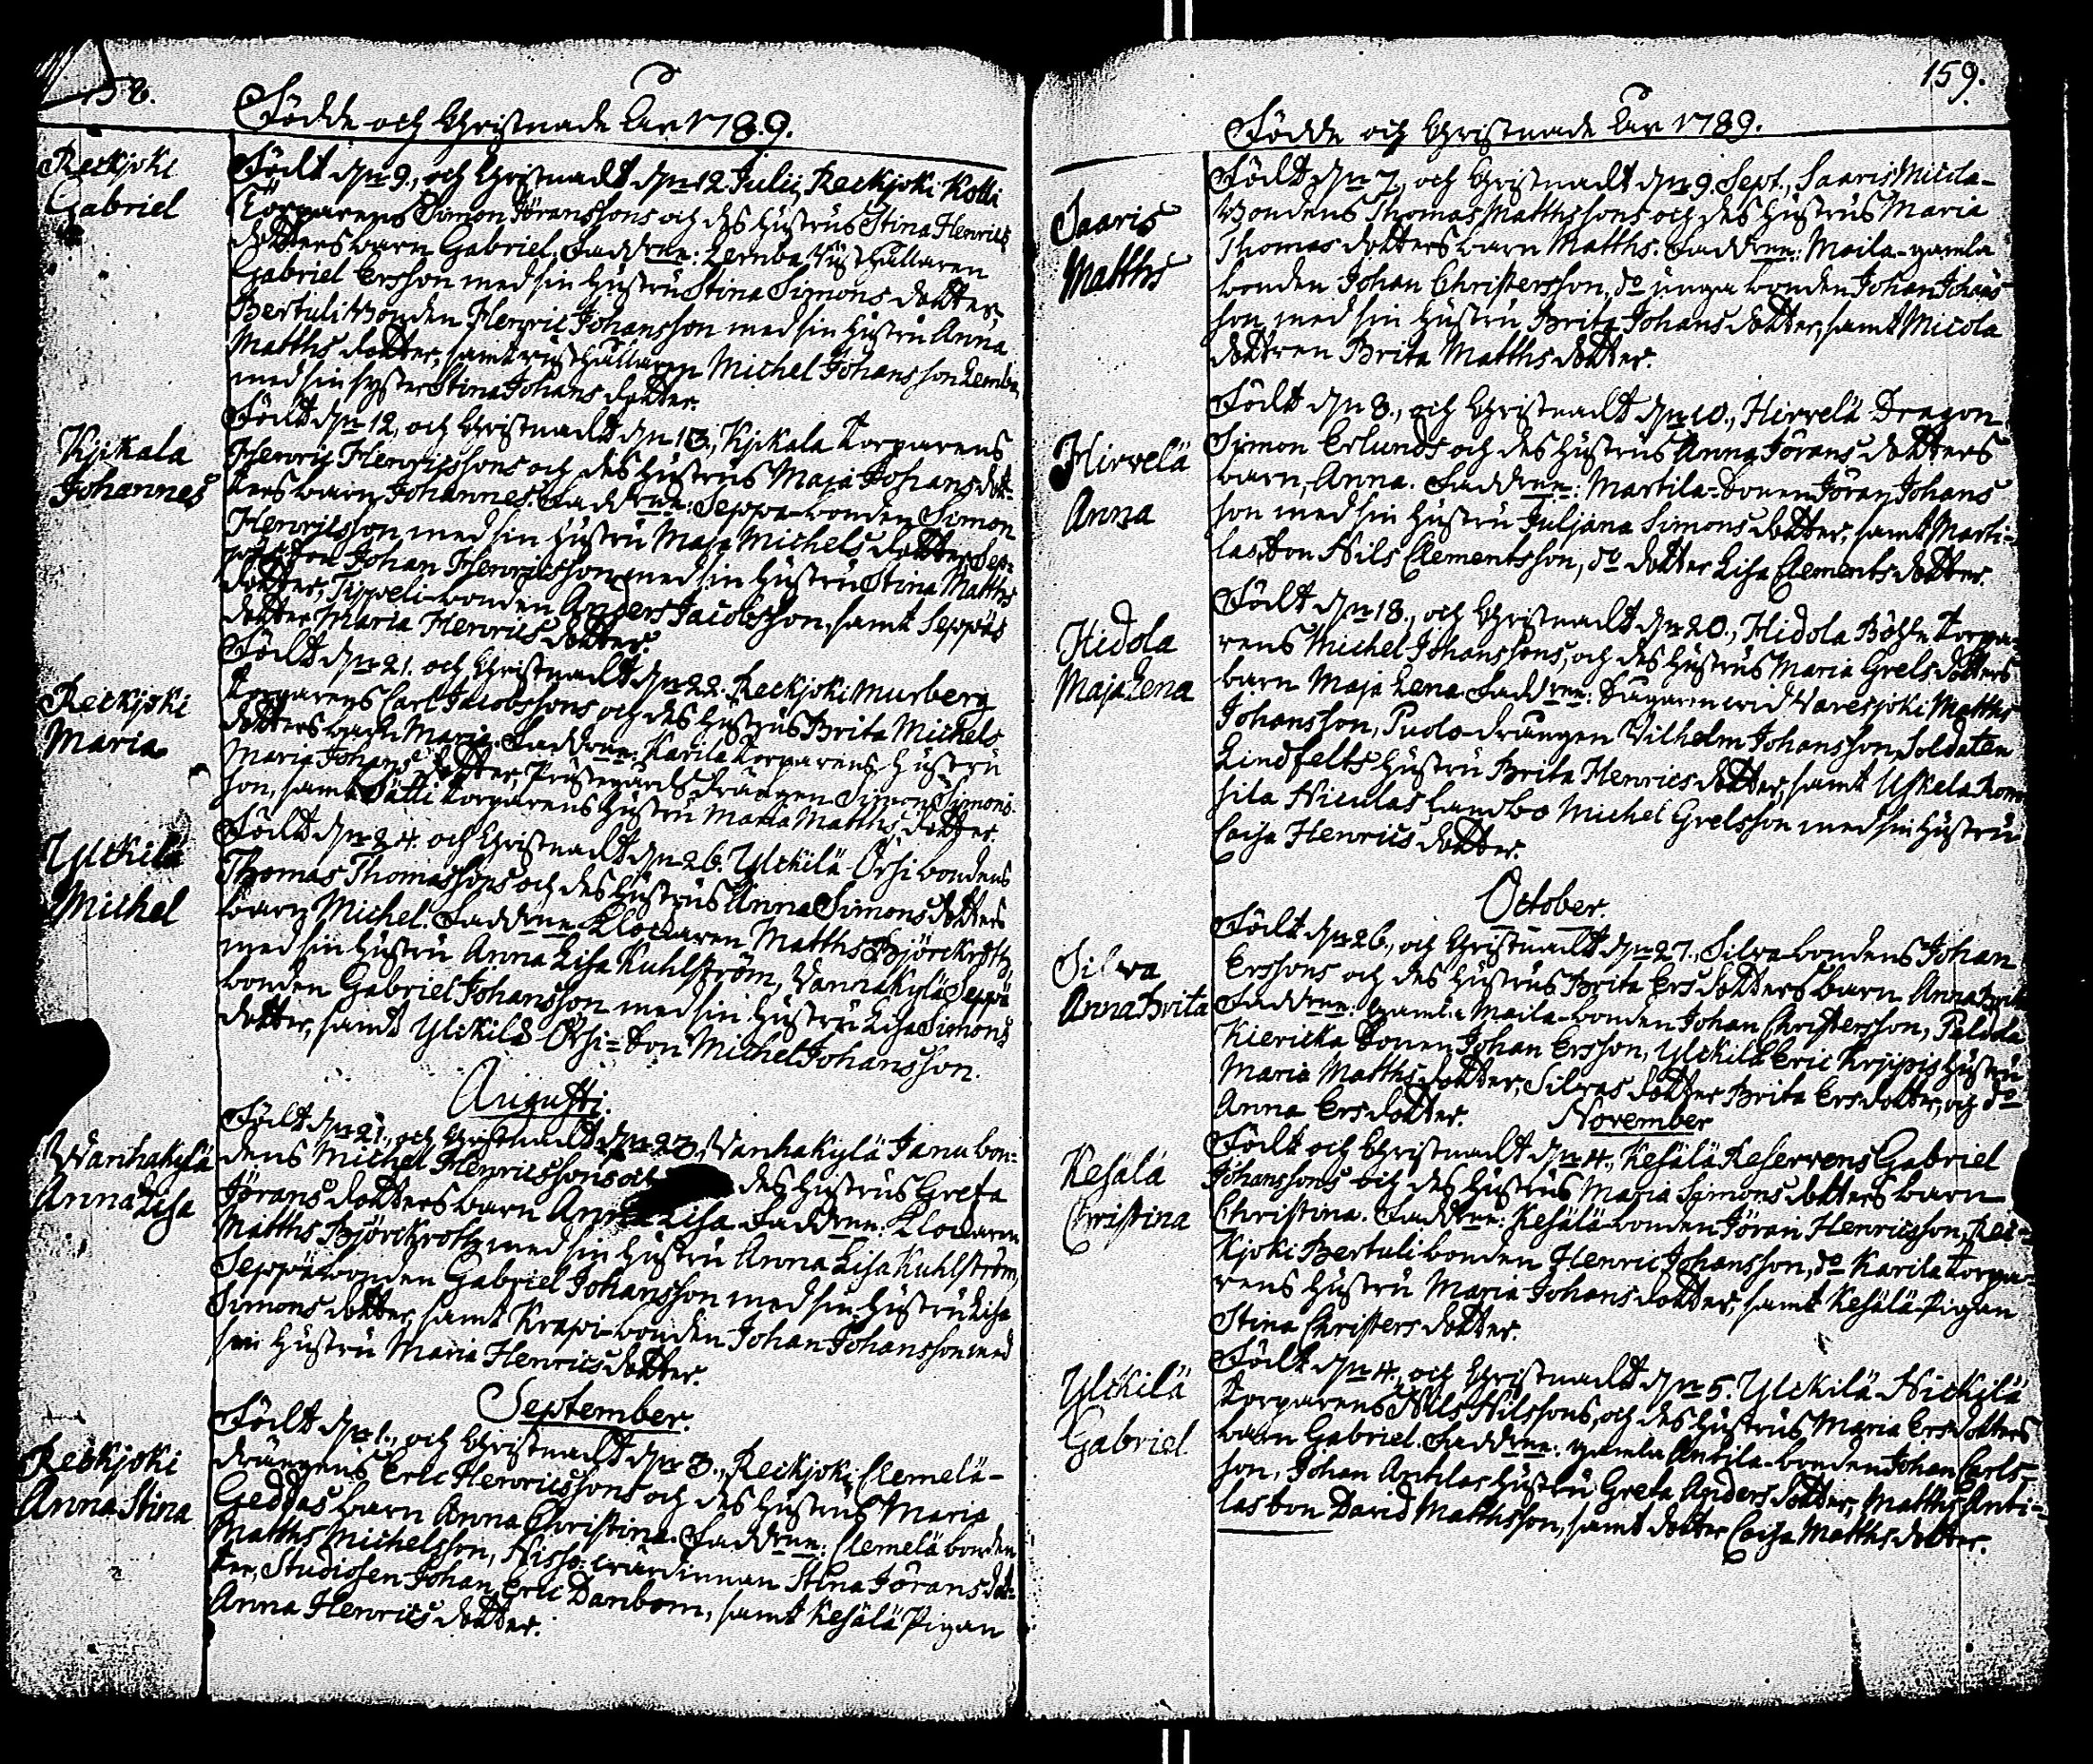 158.
Födde och Christnade Åhr 1789.
Reckjoki
Gabriel
Födt den 9., och Christnadt den 12. Julii, Reckjoki Kotti
Torparens Simon Jöranssons och des Hustrus Stina Henrics
dotters barn Gabriel. Faddrne: Lemba Rusthållaren
Gabriel Ersson med sin Hustru Stina Simons dotter,
Bertuli Bonden Henric Johansson med sin Hustru Anna
Matths dotter, samt rusthållaren Michel Johansson Lemba
med sin syster Stina Johans dotter.
Kjikala
Johannes
Födt den 12, och Christnadt den 13., Kjikala Torparens
Henric Henricssons och des Hustrus Maja Johans dot-
ters barn Johannes. Faddrne: Seppä-bonden Simon
Henricsson med sin Hustru Maja Michels dotter, Sep-
Johan Henricsson med sin Hustru Stina Matths
dotter, Typpeli-bonden Anders Jacobsson, samt Seppäs
dotter Maria Henrics dotter.
Reckjoki
Maria
Födt den 21. och Christnadt den 22. Reckjoki Murberg
torparens Carl Jacobssons och des Hustrus Brita Michels
dotters barn Maria. Faddrne: Karila torparens Hustru
Maria Johans dotter, Prästegårds drängen Simon Simons-
son, samt Sätti torparens Hustru Maria Matths dotter.
Ylckilä
Michel
Födt den 24. och Christnadt den 26. Ylckilä Orhi bondens
Thomas Thomassons och des Hustrus Anna Simons dotters
barn Michel. Faddrne Klockaren Matths Björckroth
med sin Hustru Anna Lisa Kuhlström, Vannakylä Seppä
bonden Gabriel Johansson med sin Hustru Lisa Simons
dotter, samt Ylckilä Orhi-son Michel Johansson.
Augusti.
Wanhakylä
Anna Lisa
Födt den 21., och Christnadt den 23., Wanhakylä Janu bon-
dens Michel Henricssons och des Hustrus Greta
Jörans dotters barn Anna Lisa. Faddrne: Klockaren
Matths Björckroth med sin Hustru Anna Lisa Kuhlström,
Seppä bonden Gabriel Johansson med sin Hustru Lisa
Simons dotter, samt Krapi-bonden Johan Johansson med
sin Hustru Maria Henrics dotter.
September.
Reckjoki
Anna Stina
Födt den 1., och Christnadt den 3., Reckjoki Clemelä-
drängens Eric Henricssons och des Hustrus Maria
Geddas barn Anna Christina. Faddrne: Clemelä bonden
Matths Michelsson, Nisso-wärdinnan Stina Jörans dot-
ter, Studiosen Johan Eric Danbom, samt Kesälä Pigan
Anna Henrics dotter.
159.
Födde och Christnade Åhr 1789.
Saaris
Matths
Födt den 7., och Christnadt den 9. Sept., Saaris Micola-
Bondens Thomas Matthssons och des Hustrus Maria
Thomas dotters barn Matths. Faddrne: Maila-gamla
bonden Johan Christersson, do unga bonden Johan Johans
son med sin Hustru Brita Johans dotter, samt Micola
dottren Brita Matths dotter.
Hirvelä
Anna
Födt den 8., och Christnadt den 10., Hirvelä Dragon
Simon Erlunds och des Hustrus Anna Jörans dotters
barn, Anna. Faddrne: Martila-sonen Jöran Johans
son med sin Hustru Juljana Simons dotter, samt Marti-
las son Nils Clementsson, do dotter Lisa Clements dotter.
Hidola
Maja Lena
Födt den 18., och Christnadt den 20., Hidola Böhle torpa-
rens Michel Johanssons, och des Hustrus Maria Grels dotters
barn Maja Lena. Faddrne: Sugarn wid Waresjoki Matths
Johansson, Puolo-drängen Vilhelm Johansson, Soldaten
Lindfelts Hustru Brita Henrics dotter, samt Uskela Kom
sila Niculas landbo Michel Grelsson med sin Hustru
Caisa Henrics dotter.
October.
Silva
Anna Brita
Födt den 26., och Christnadt den 27., Silva-bondens Johan
Erssons och des Hustrus Brita Ers dotters barn Anna Brita
Faddrne: gamla Maila-bonden Johan Christersson, Palola
Kiericka sonen Johan Ersson, Ylckilä Eric Krjipis Hustru
Maria Matths dotter, Silvas dotter Brita Ersdotter, och do
Anna Ersdotter.
November
Kesälä
Christina
Födt och Christnadt den 4., Kesälä Reservens Gabriel
Johanssons och des Hustrus Maria Simons dotters barn
Christina. Faddrne: Kesälä-bonden Jöran Henricsson, Rec-
kjoki Bertuli bonden Henric Johansson, do Karila torpa-
rens Hustru Maria Johans dotter, samt Kesälä-Pigan
Stina Christers dotter.
Ylckilä
Gabriel
Födt den 4., och Christnadt den 5. Ylckilä Nickilä
torparens Nils Nilssons, och des Hustrus Maria Ers dotters
barn Gabriel. Faddrne: gamla Antila-bonden Johan Carls-
son, Johan Antilas Hustru Greta Anders dotter, Matths Anti-
las son David Matthsson, samt dotter Caisa Matths dotter.